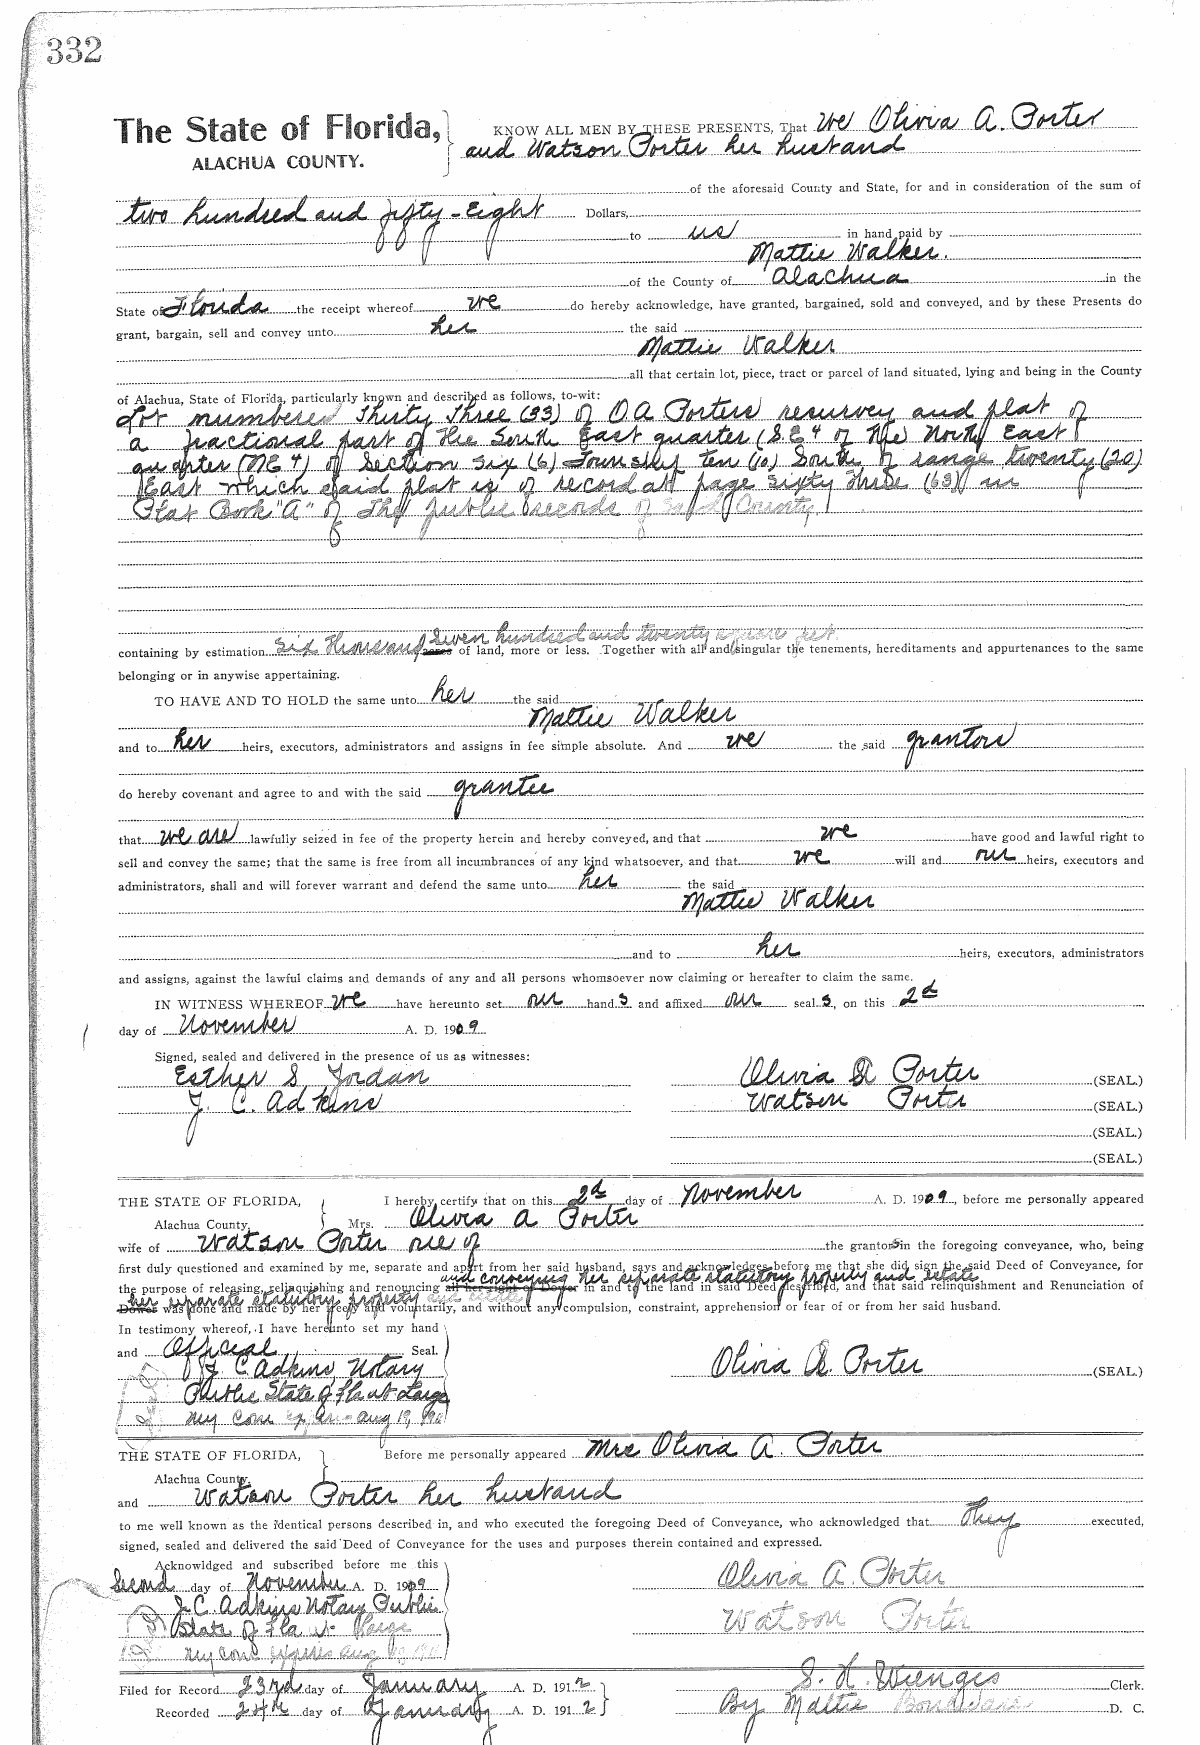 332
The State of Florida, KNOW ALL MEN BY THESE PRESENTS, That we Olivia A. Porter
ALACHUA COUNTY. and Watson Porter her husband
of the aforesaid County and State, for and in consideration of the sum of
two hundred and fifty-Eight Dollars,
to us in hand paid by
Mattie Walker.
of the County of Alachua in the
State of Florida the receipt whereof we do hereby acknowledge, have granted, bargained, sold and conveyed, and by these Presents do
grant, bargain, sell and convey unto her the said
Mattie Walker
all that certain lot, piece, tract or parcel of land situated, lying and being in the County
of Alachua, State of Florida, particularly known and described as follows, to-wit:
Lot numbered Thirty Three (33) of O A Porters resurvey and plat of
a fractional part of the South East quarter (S.E 4 of the North East
quarter (NE 4) of Section Six (6) Township ten (10) South of range twenty (20)
East which said plat is of record at page sixty three (63) in
Plat Book "A" of the public records of Said County
Seven hundred and twenty square feet.
containing by estimation Six Thousand acres of land, more or less. Together with all and singular the tenements, hereditaments and appurtenances to the same
belonging or in anywise appertaining.
TO HAVE AND TO HOLD the same unto her the said
Mattie Walker
and to her heirs, executors, administrators and assigns in fee simple absolute. And we the said grantors
do hereby covenant and agree to and with the said grantee
that we are lawfully seized in fee of the property herein and hereby conveyed, and that we have good and lawful right to
sell and convey the same; that the same is free from all incumbrances of any kind whatsoever, and that we will and our heirs, executors and
administrators, shall and will forever warrant and defend the same unto her the said
Mattie Walker
and to her heirs, executors, administrators
and assigns, against the lawful claims and demands of any and all persons whomsoever now claiming or hereafter to claim the same.
IN WITNESS WHEREOF we have hereunto set our hand s and affixed our seal s, on this 2d
day of November A. D. 1909
Signed, sealed and delivered in the presence of us as witnesses:
Esther S. Jordan Olivia A Porter (SEAL.)
J. C. Adkins Watson Porter (SEAL.)
(SEAL.)
(SEAL.)
THE STATE OF FLORIDA, I hereby certify that on this 2d day of November A. D. 1909, before me personally appeared
Alachua County. Mrs. Olivia A Porter
wife of Watson Porter one of the grantors in the foregoing conveyance, who, being
first duly questioned and examined by me, separate and apart from her said husband, says and acknowledges before me that she did sign the said Deed of Conveyance, for
and conveying her separate statutory property and estate
the purpose of releasing, relinquishing and renouncing all her right of Dower in and to the land in said Deed described, and that said relinquishment and Renunciation of
her separate statutory property and estate
Dower was done and made by her freely and voluntarily, and without any compulsion, constraint, apprehension or fear of or from her said husband.
In testimony whereof, I have hereunto set my hand
and Official Seal.
J C. Adkins, Notary Olivia A. Porter (SEAL)
Public State of Fla at Large
my Com expires Aug 19, 
THE STATE OF FLORIDA, Before me personally appeared Mrs Olivia A. Porter
Alachua County.
and Watson Porter her husband
to me well known as the identical persons described in, and who executed the foregoing Deed of Conveyance, who acknowledged that they executed,
signed, sealed and delivered the said Deed of Conveyance for the uses and purposes therein contained and expressed.
Acknowldged and subscribed before me this
Second day of November A. D. 1909 Olivia A. Porter
J.C. Adkins Notary Public
State of Fla at Large Watson Porter
my Com expires Aug
Filed for Record 23rd day of January A. D. 1912 S. H. Wienges Clerk.
Recorded 24th day of January A. D. 1912 By Mattie D. C.